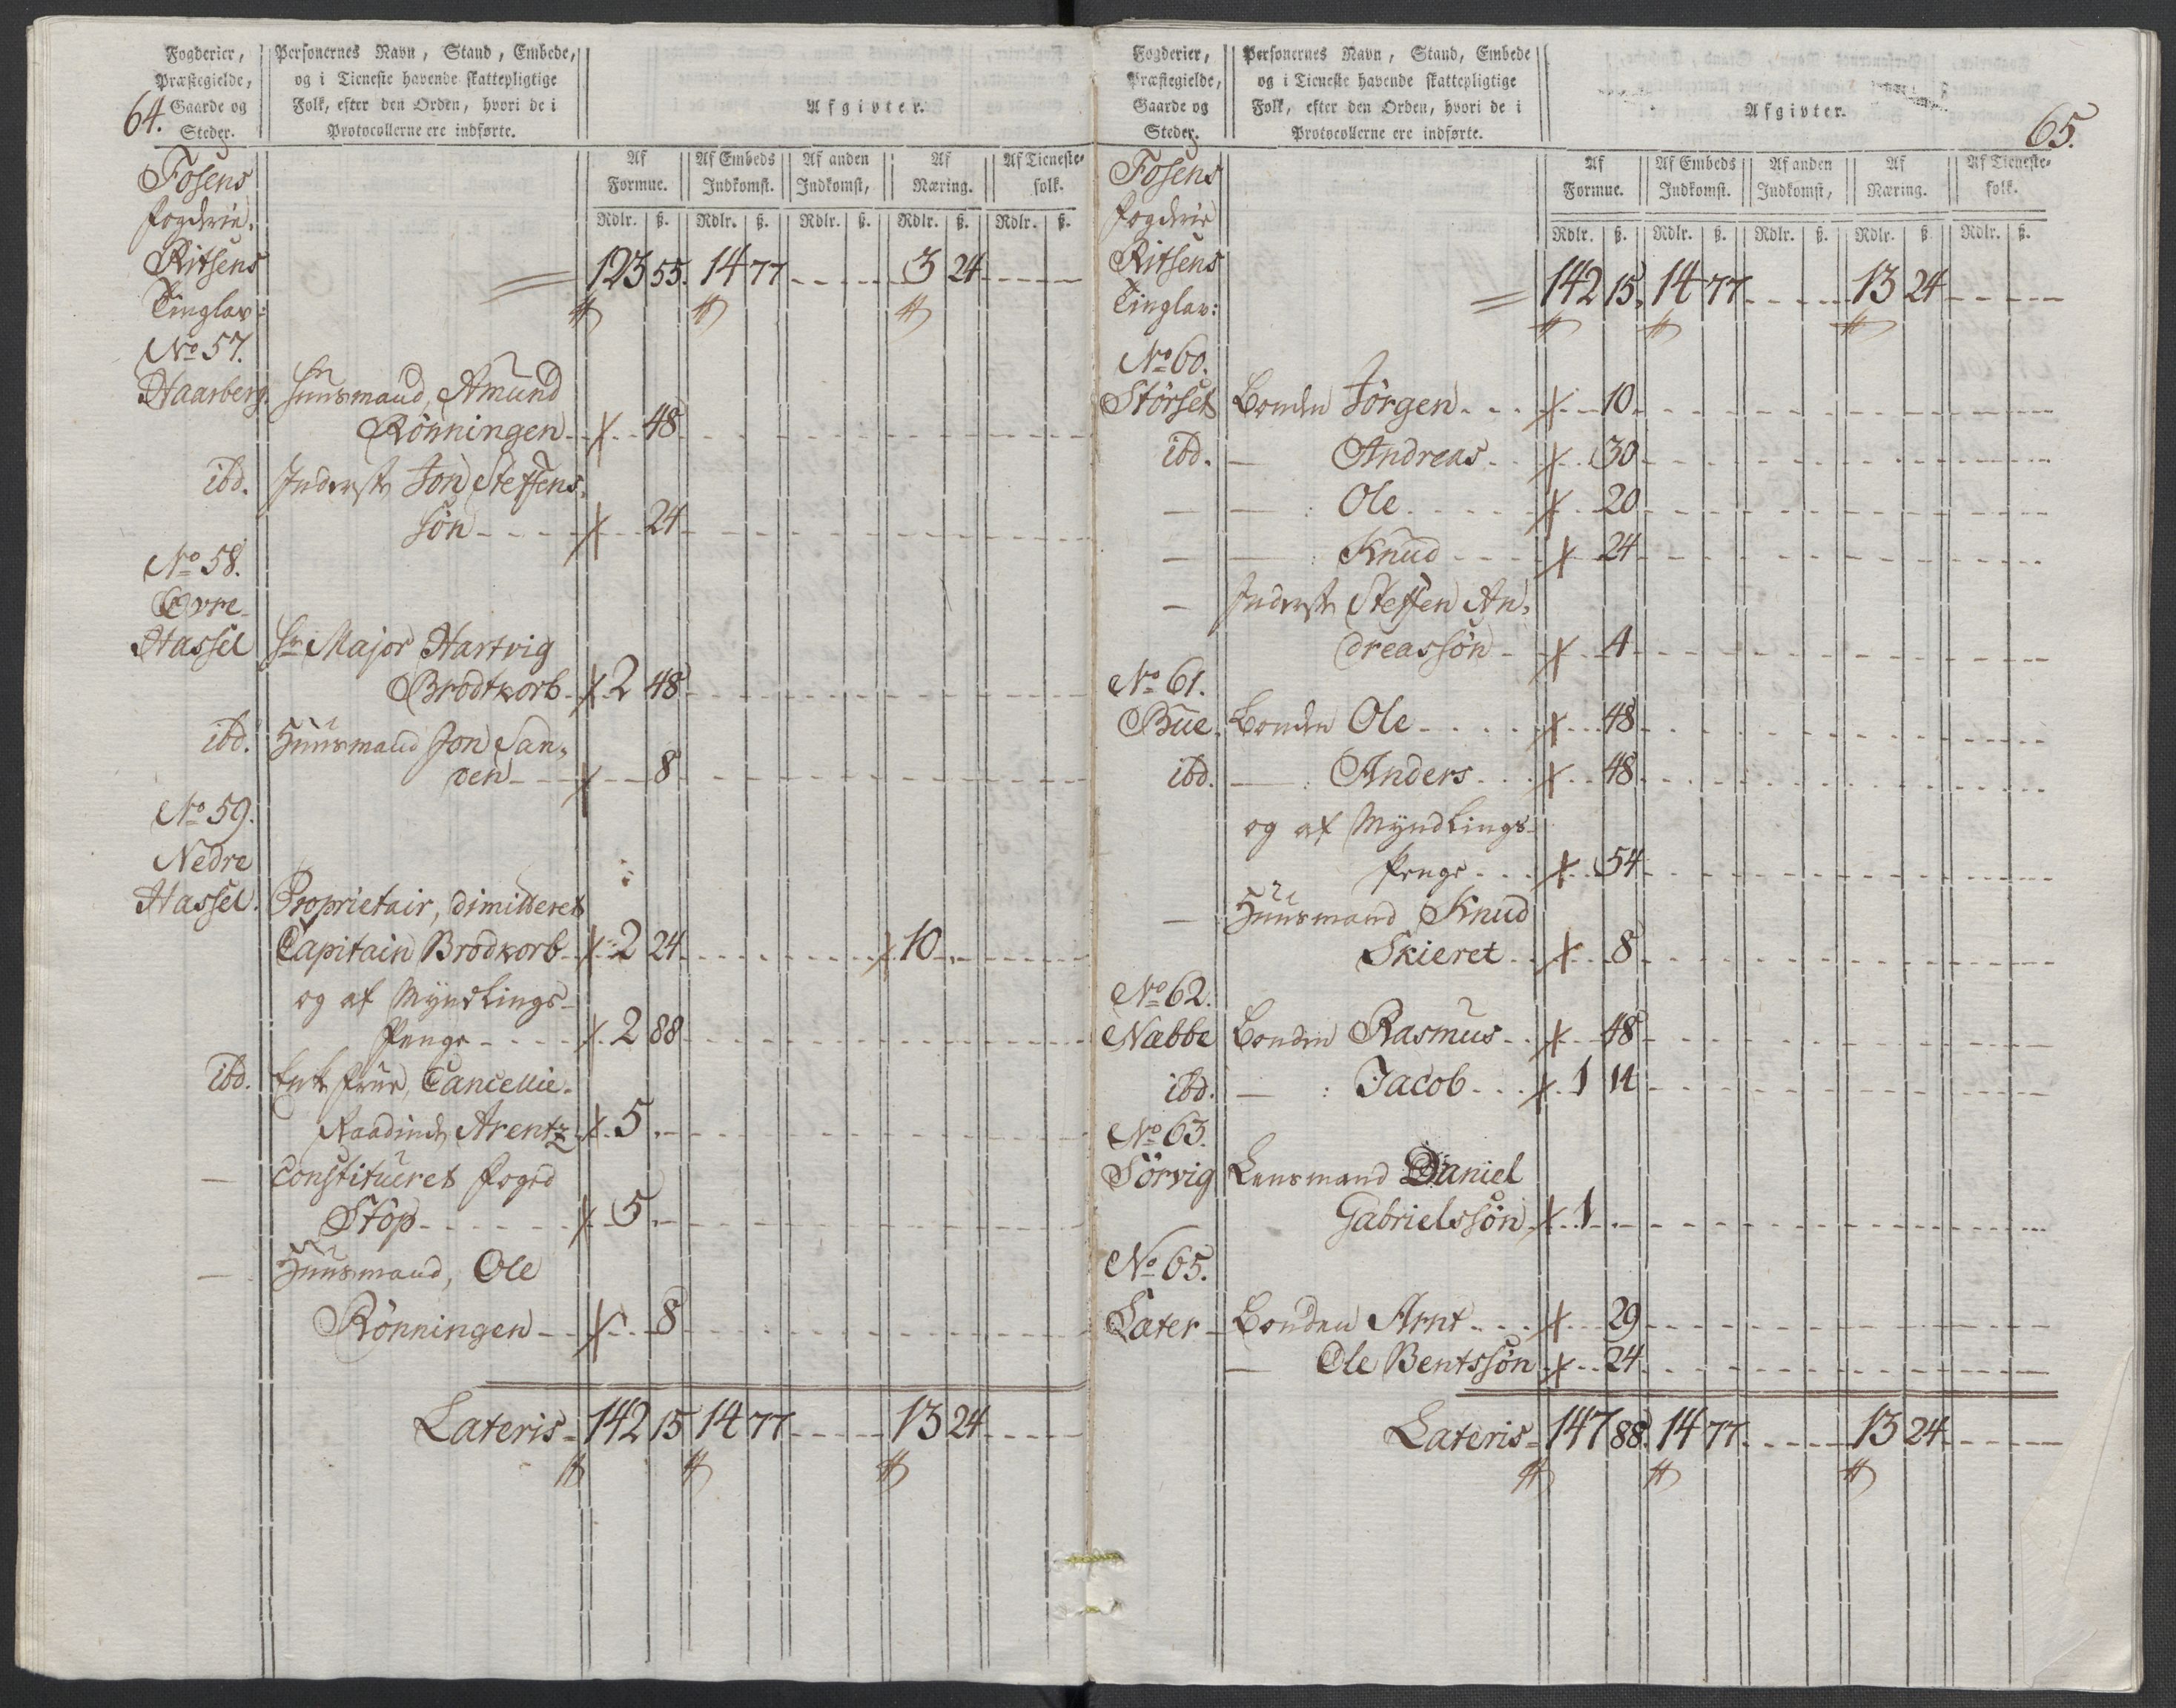 64.
Fogderier,
Præstegielde,
Gaarde og
Steder.
Personernes Navn, Stand, Embede,
og i Tieneste havende skattepligtige
Folk, efter den Orden, hvori de i
Protocollerne ere indførte.
Afgivter.
Af Formue. Af Embeds Indkomst. Af anden Indkomst, Af Næring. Af Tieneste-folk.
Rdlr. ß. Rdlr. ß. Rdlr. ß. Rdlr. ß. Rdlr. ß.
Fosens
Fogderie.
Ritsens 123 55. 14 77 3 24
Tinglav:
No 57.
Haarberg. Huusmand, Amund
Rönningen 48
ibd. Inderste Jon Steffens
sön 24
No 58.
Övre
Hassel Hr Major Hartvig
Brodtkorb 2 48
ibd. Huusmand Jon San-
den 8
No 59.
Nedre
Hassel. Proprietair, dimitteret
Capitain Brodkorb 2 24 10
og af Myndlings-
Penge 2 88
ibd. Enke Frue, Cancellie-
Raadinde Arentz 5
— Constitueret Foged
Stöp 5
— Huusmand, Ole
Rönningen 8
Lateris 142 15 14 77 13 24
65.
Fogderier,
Præstegielde,
Gaarde og
Steder.
Personernes Navn, Stand, Embede
og i Tieneste havende skattepligtige
Folk, efter den Orden, hvori de i
Protocollerne ere indførte.
Afgivter.
Af Formue. Af Embeds Indkomst. Af anden Indkomst, Af Næring. Af Tieneste-folk.
Rdlr. ß. Rdlr. ß. Rdlr. ß. Rdlr. ß. Rdlr. ß.
Fosens
Fogderie
Ritsens 142 15. 14 77 13 24
Tinglav:
No 60.
Störset Bonden Jörgen 10
ibd. — Andreas 30
— — : Ole 20
— — : Knud 24
— Inderste Steffen An-
dreassön 4
No 61.
Bue. Bonden Ole 48
ibd. — : Anders 48
og af Myndlings-
Penge 54
— Huusmand Knud
Skieret 8
No 62.
Næbbe Bonden Rasmus 48
ibd. — : Jacob 1 14
No 63.
Sörvig Lensmand Daniel
Gabrielssön 1
No 65.
Sæter Bonden Arnt 29
— Ole Bentssön 24
Lateris 147 88. 14 77. 13 24